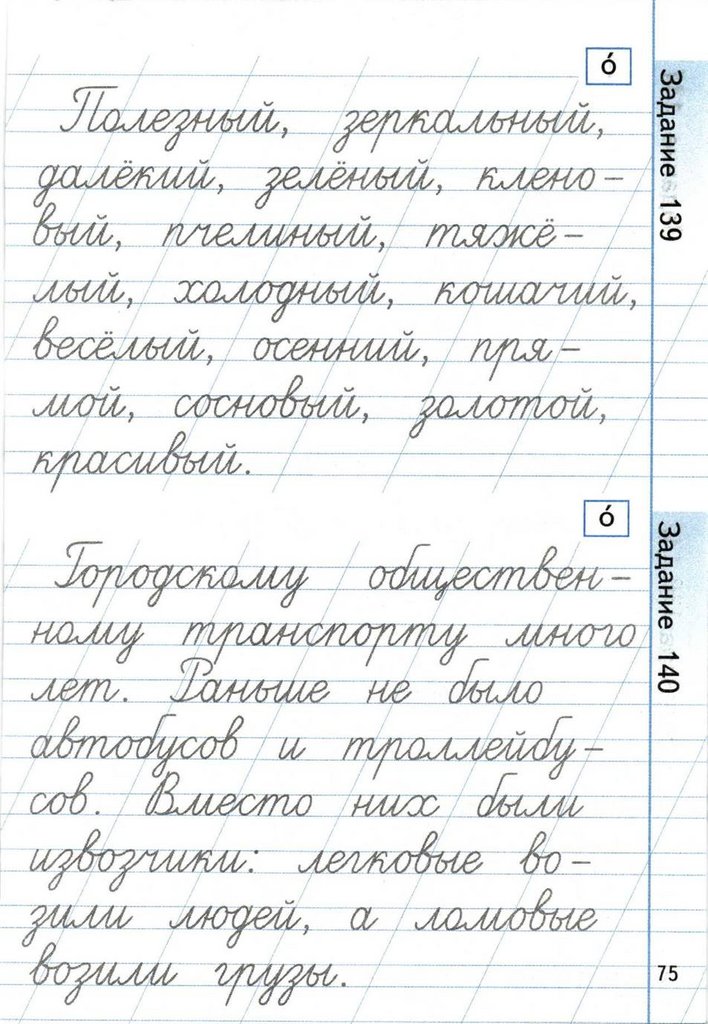 о́
Задание 139
Полезный, зеркальный,
далёкий, зелёный, клено-
вый, пчелиный, тяжё-
лый, холодный, кошачий,
весёлый, осенний, пря-
мой, сосновый, золотой,
красивый.
о́
Задание 140
Городскому обществен-
ному транспорту много
лет. Раньше не было
автобусов и троллейбу-
сов. Вместо них были
извозчики: легковые во-
зили людей, а ломовые
возили грузы.
75